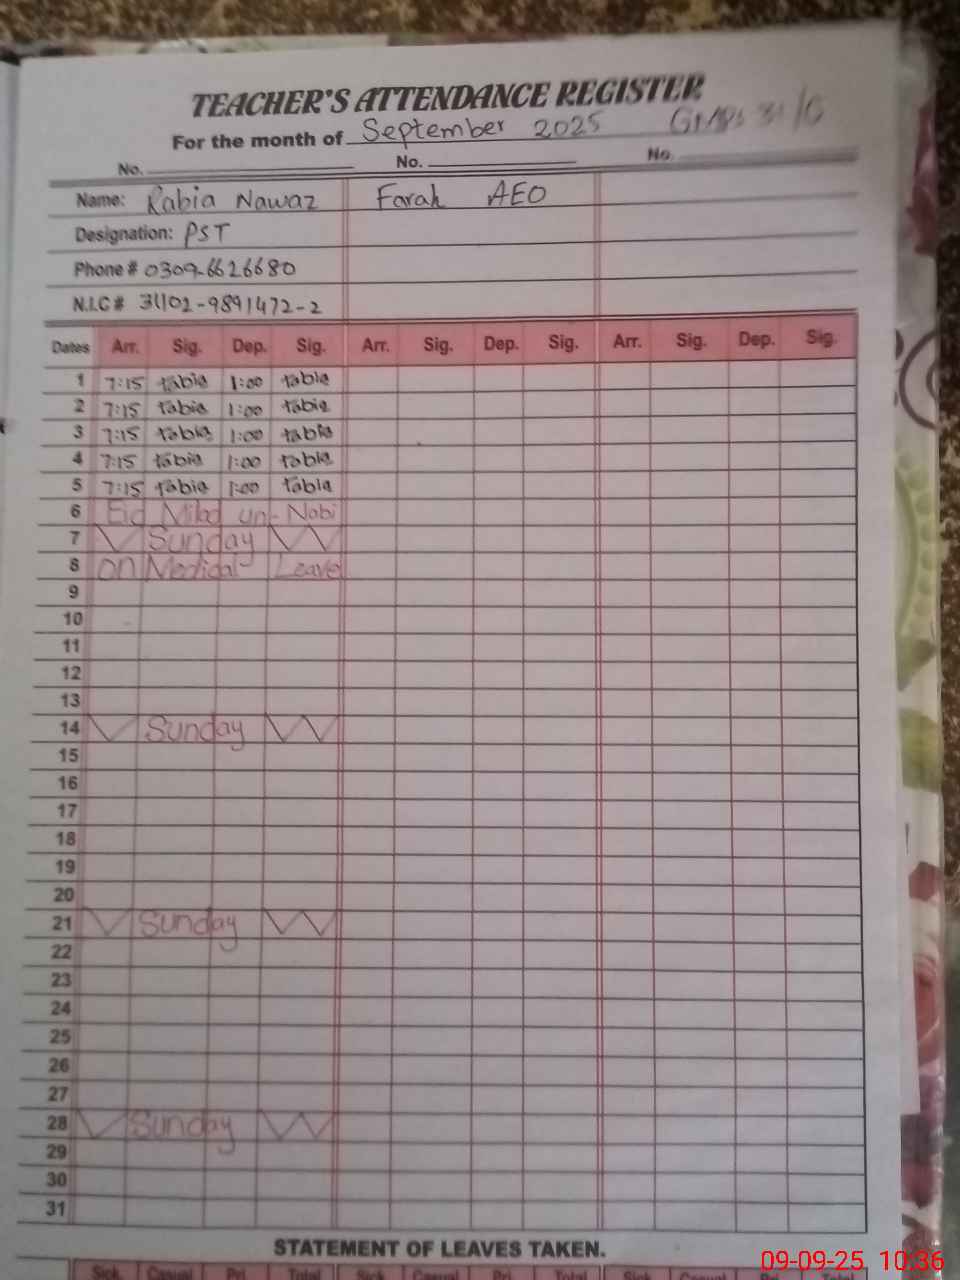 TEACHER'S ATTENDANCE REGISTER
For the month of September 2025 GMPS 31/G
No. No. No.
Name: Rabia Nawaz Farah AEO
Designation: PST
Phone # 0309-6626680
N.I.C # 31102-9891472-2
Dates Arr. Sig. Dep. Sig. Arr. Sig. Dep. Sig. Arr. Sig. Dep. Sig.
1 7:15 rabia 1:00 rabia
2 7:15 rabia 1:00 rabia
3 7:15 rabia 1:00 rabia
4 7:15 rabia 1:00 rabia
5 7:15 rabia 1:00 rabia
6 Eid Milad un-Nabi
7 Sunday
8 on Medical Leave
9
10
11
12
13
14 Sunday
15
16
17
18
19
20
21 Sunday
22
23
24
25
26
27
28 Sunday
29
30
31
STATEMENT OF LEAVES TAKEN.
Sick Casual Total Sick Casual Total Sick Casual Total
09-09-25 10:36